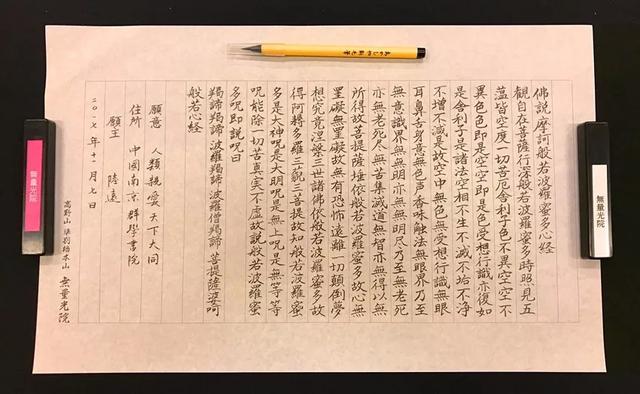 佛説摩訶般若波羅蜜多心経
観自在菩薩行深般若波羅蜜多時照見五
蘊皆空度一切苦厄舎利子色不異空空不
異色色即是空空即是色受想行識亦復如
是舎利子是諸法空相不生不滅不垢不浄
不増不減是故空中無色無受想行識無眼
耳鼻舌身意無色声香味触法無眼界乃至
無意識界無無明亦無無明尽乃至無老死
亦無老死尽無苦集滅道無智亦無得以無
所得故菩提薩埵依般若波羅蜜多故心無
罣礙無罣礙故無有恐怖遠離一切顛倒夢
想究竟涅槃三世諸佛依般若波羅蜜多故
得阿耨多羅三藐三菩提故知般若波羅蜜
多是大神呪是大明呪是無上呪是無等等
呪能除一切苦真実不虚故説般若波羅蜜
多呪即説呪曰
羯諦羯諦 波羅羯諦 波羅僧羯諦 菩提薩婆呵
般若心経
願意 人類親愛天下大同
住所 中國南京群學書院
願主 陸遠
二〇一七年十一月七日
高野山 準別格本山 無量光院
無量光院
無量光院